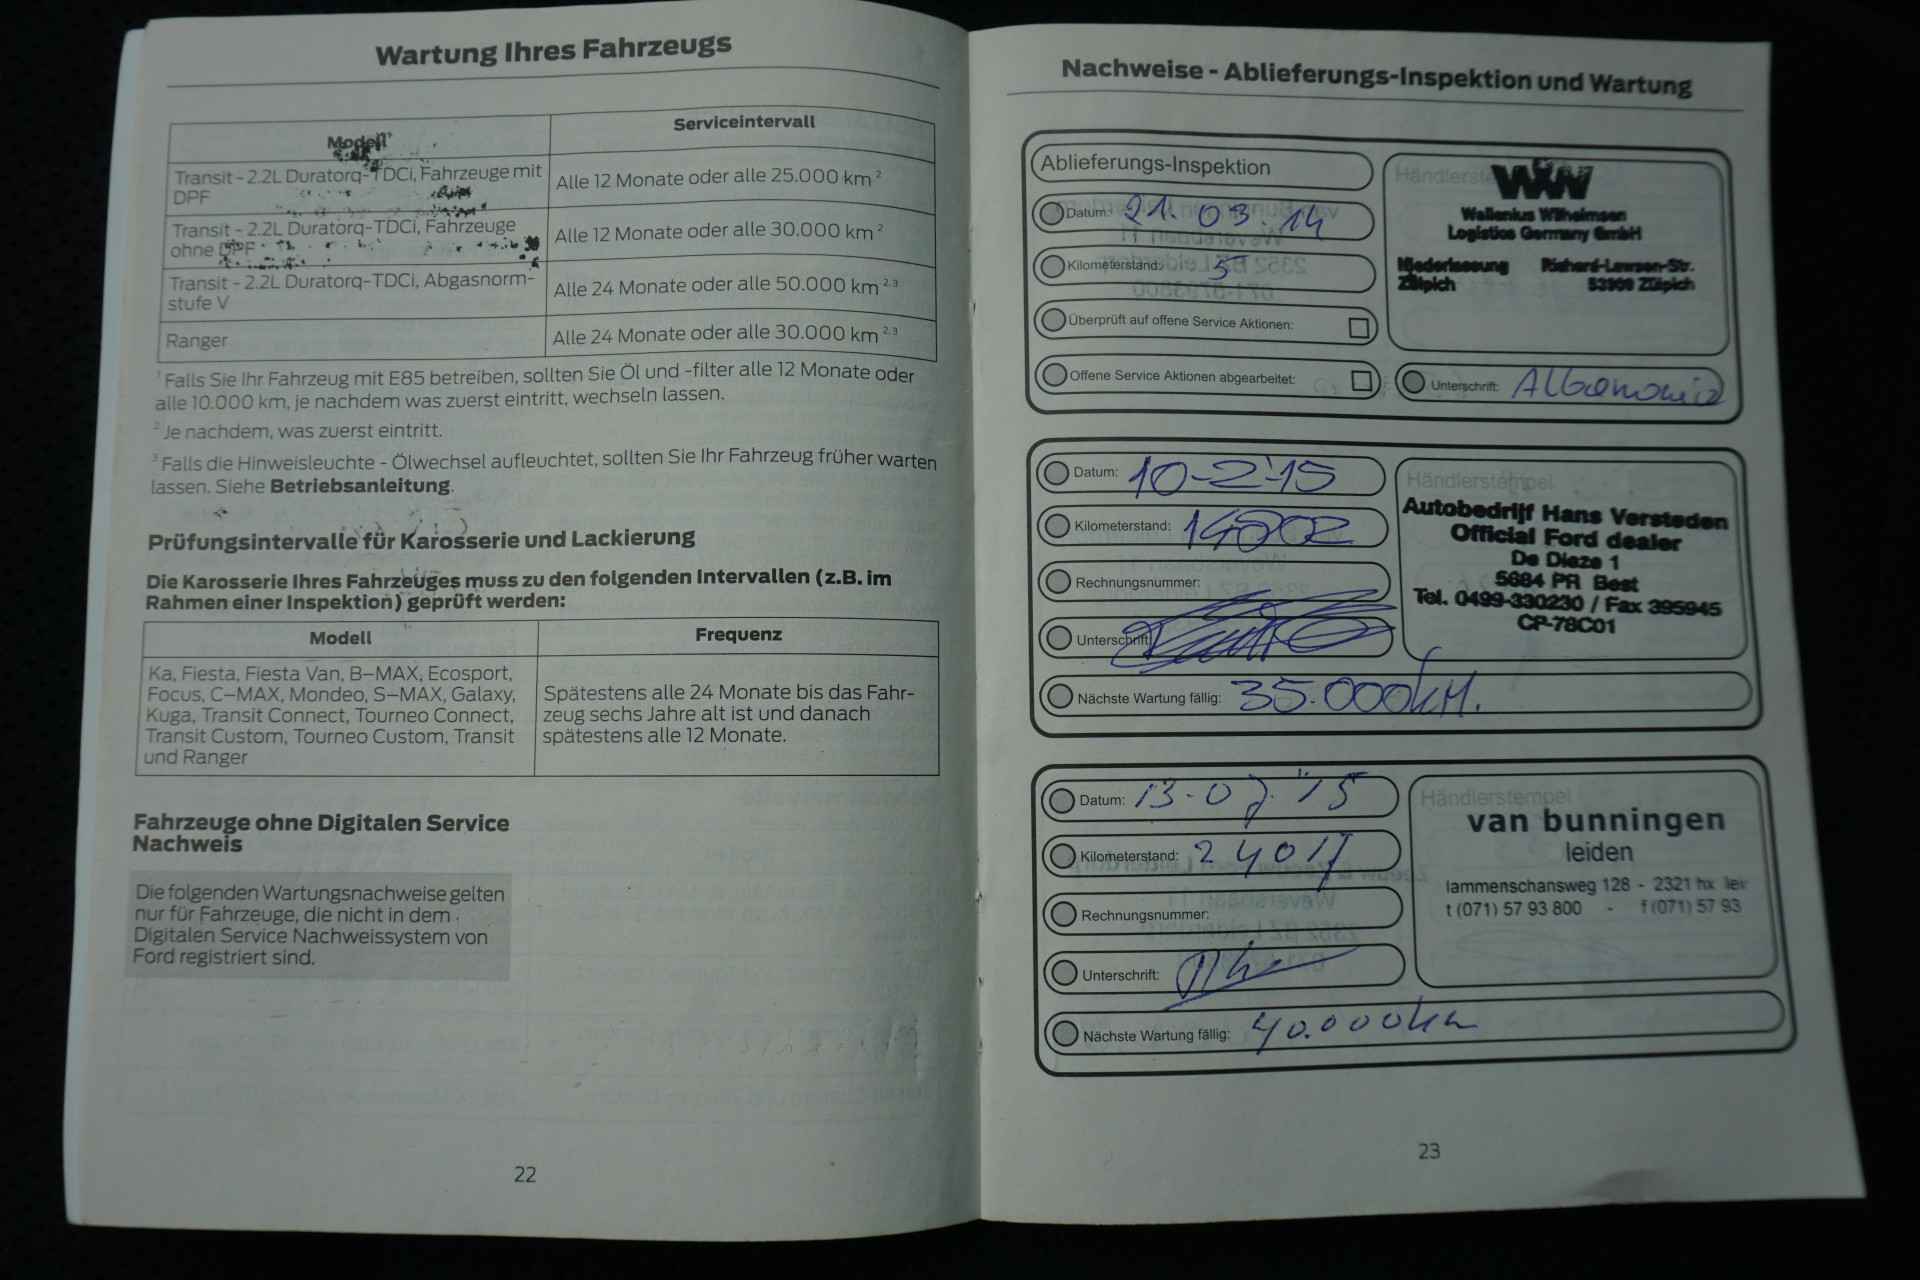 Wartung Ihres Fahrzeugs
Modell
Serviceintervall
Transit - 2.2L Duratorq-TDCi, Fahrzeuge mit
DPF
Alle 12 Monate oder alle 25.000 km ²
Transit - 2.2L Duratorq-TDCi, Fahrzeuge
ohne DPF
Alle 12 Monate oder alle 30.000 km ²
Transit - 2.2L Duratorq-TDCi, Abgasnorm-
stufe V
Alle 24 Monate oder alle 50.000 km ²,³
Ranger
Alle 24 Monate oder alle 30.000 km ²,³
¹ Falls Sie Ihr Fahrzeug mit E85 betreiben, sollten Sie Öl und -filter alle 12 Monate oder
alle 10.000 km, je nachdem was zuerst eintritt, wechseln lassen.
² Je nachdem, was zuerst eintritt.
³ Falls die Hinweisleuchte - Ölwechsel aufleuchtet, sollten Sie Ihr Fahrzeug früher warten
lassen. Siehe Betriebsanleitung.
Prüfungsintervalle für Karosserie und Lackierung
Die Karosserie Ihres Fahrzeuges muss zu den folgenden Intervallen (z.B. im
Rahmen einer Inspektion) geprüft werden:
Modell
Frequenz
Ka, Fiesta, Fiesta Van, B-MAX, Ecosport,
Focus, C-MAX, Mondeo, S-MAX, Galaxy,
Kuga, Transit Connect, Tourneo Connect,
Transit Custom, Tourneo Custom, Transit
und Ranger
Spätestens alle 24 Monate bis das Fahr-
zeug sechs Jahre alt ist und danach
spätestens alle 12 Monate.
Fahrzeuge ohne Digitalen Service
Nachweis
Die folgenden Wartungsnachweise gelten
nur für Fahrzeuge, die nicht in dem
Digitalen Service Nachweissystem von
Ford registriert sind.
22
Nachweise - Ablieferungs-Inspektion und Wartung
Ablieferungs-Inspektion
Datum: 21.03.14
Kilometerstand: 5
Überprüft auf offene Service Aktionen:
Offene Service Aktionen abgearbeitet:
WW
Wallenius Wilhelmsen
Logistics Germany GmbH
Niederlassung Richard-Lawson-Str.
Zülpich 53909 Zülpich
Unterschrift:
Datum: 10-2-'15
Kilometerstand: 14202
Rechnungsnummer:
Unterschrift:
Nächste Wartung fällig: 35.000kM.
Händlerstempel
Autobedrijf Hans Versteden
Official Ford dealer
De Dieze 1
5684 PR Best
Tel. 0499-330230 / Fax 395945
CP-78C01
Datum: 13-07-'15
Kilometerstand: 24017
Rechnungsnummer:
Unterschrift:
Nächste Wartung fällig: 40.000km
Händlerstempel
van bunningen
leiden
lammenschansweg 128 - 2321 hx lei
t (071) 57 93 800 - f (071) 57 93
23